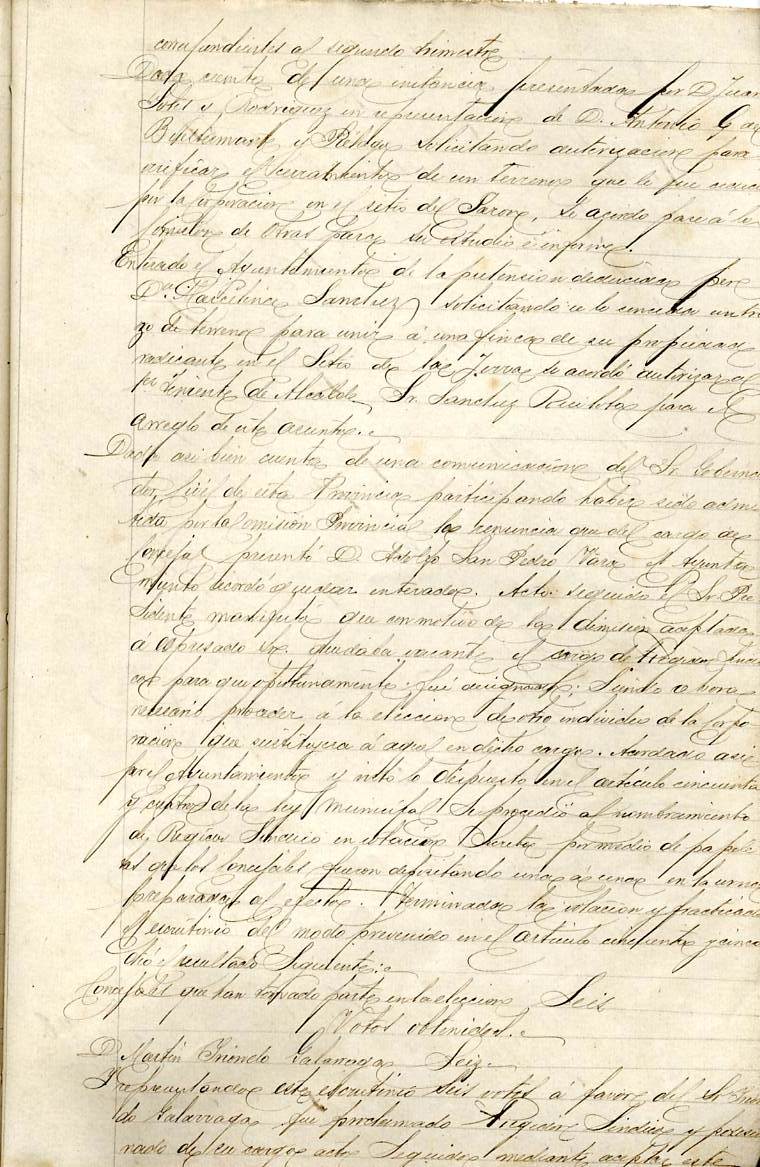 correspondientes al segundo trimestre
Dada cuenta de una instancia presentada por D. Juan
Solis y Rodriguez en representacion de D. Antonio G
y solicitando autorizacion para
el cerramiento de un terreno que le fue
por la Corporacion en el sitio del se acordo pase á la
Comision de Obras para su estudio é informe.
Enterado el Ayuntamiento de la pretension deducida por
D.ª Marcelina Sanchez solicitando se le conceda un tro
zo de terreno para unir á una finca de su propiedad
radicante en el Sitio de las se acordó autorizar al
1er Teniente de Alcalde Sr. Sanchez para el
arreglo de este asunto.
Dada asi bien cuenta de una comunicacion del Sr. Goberna
dor Civil de esta Provincia participando haber sido admi
tida por la Comision Provincial la renuncia que del cargo de
Concejal presentó D. Adolfo San Pedro Vara el Ayunta
miento acordó quedar enterado. Acto seguido el Sr. Pre
sidente manifestó que con motivo de la dimision aceptada
á espresado Sr. quedaba vacante el cargo de Regidor Sindi
co para que oportunamente fué designado; siendo ahora
necesario proceder á la eleccion de otro individuo de la Corpo
racion que sustituyera á aquel en dicho cargo. Acordado asi
por el Ayuntamiento y visto lo dispuesto en el artículo cincuenta
y cuatro de la ley Municipal se procedió al nombramiento
de Regidor Sindico en votacion secreta por medio de papele
tas que los Concejales fueron depositando una á una en la urna
preparada al efecto. Terminada la votacion y practicado
el escrutinio del modo prevenido en el artículo cincuenta y cinco
dió el resultado siguiente:
Concejales que han tomado parte en la eleccion Seis
Votos obtenidos.
D. Martin Iriondo Galarraga Seis.
Representando este escrutinio seis votos á favor del Sr. Irion
do Galarraga fue proclamado Regidor Sindico y posesio
nado de su cargo acto seguido mediante aceptar